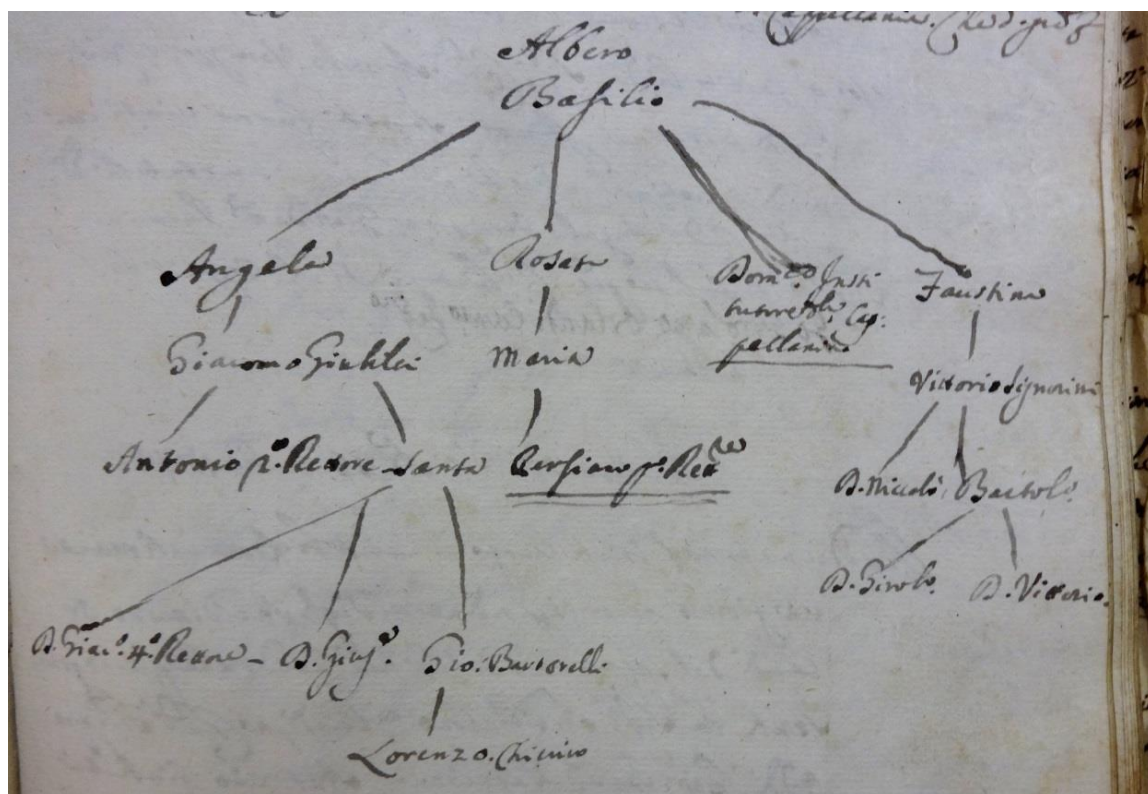 Albero
Basilio
Angela
Rosata
Dom.co Insti
Faustina
tutore
Cap:
pellania
Giacomo Giubilei
Maria
Vittorio Signorini
Antonio p.o Rettore
Santa
Persiano p.o Rett.re
D. Niccolò
Bartolo
D. Girol.o
D. Vittorio.
D. Giac.o 4.o Rettore
D. Gius.e
Gio: Bartorelli
Lorenzo. Chierico